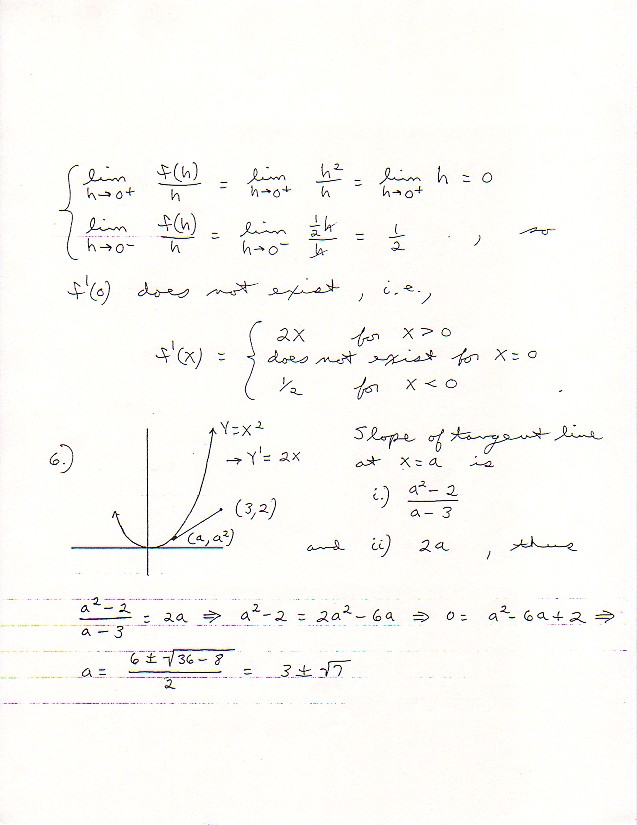 { lim h→0+ f(h)/h = lim h→0+ h²/h = lim h→0+ h = 0
lim h→0- f(h)/h = lim h→0- ½h/h = 1/2 , so
f'(0) does not exist, i.e.,
f'(x) = { 2x for x > 0
does not exist for x = 0
1/2 for x < 0
6.) Y = x² Slope of tangent line
→ Y' = 2x at x = a is
i.) (a² - 2)/(a - 3)
(3,2)
(a, a²) and ii) 2a , thus
(a² - 2)/(a - 3) = 2a ⇒ a² - 2 = 2a² - 6a ⇒ 0 = a² - 6a + 2 ⇒
a = (6 ± √(36 - 8))/2 = 3 ± √7